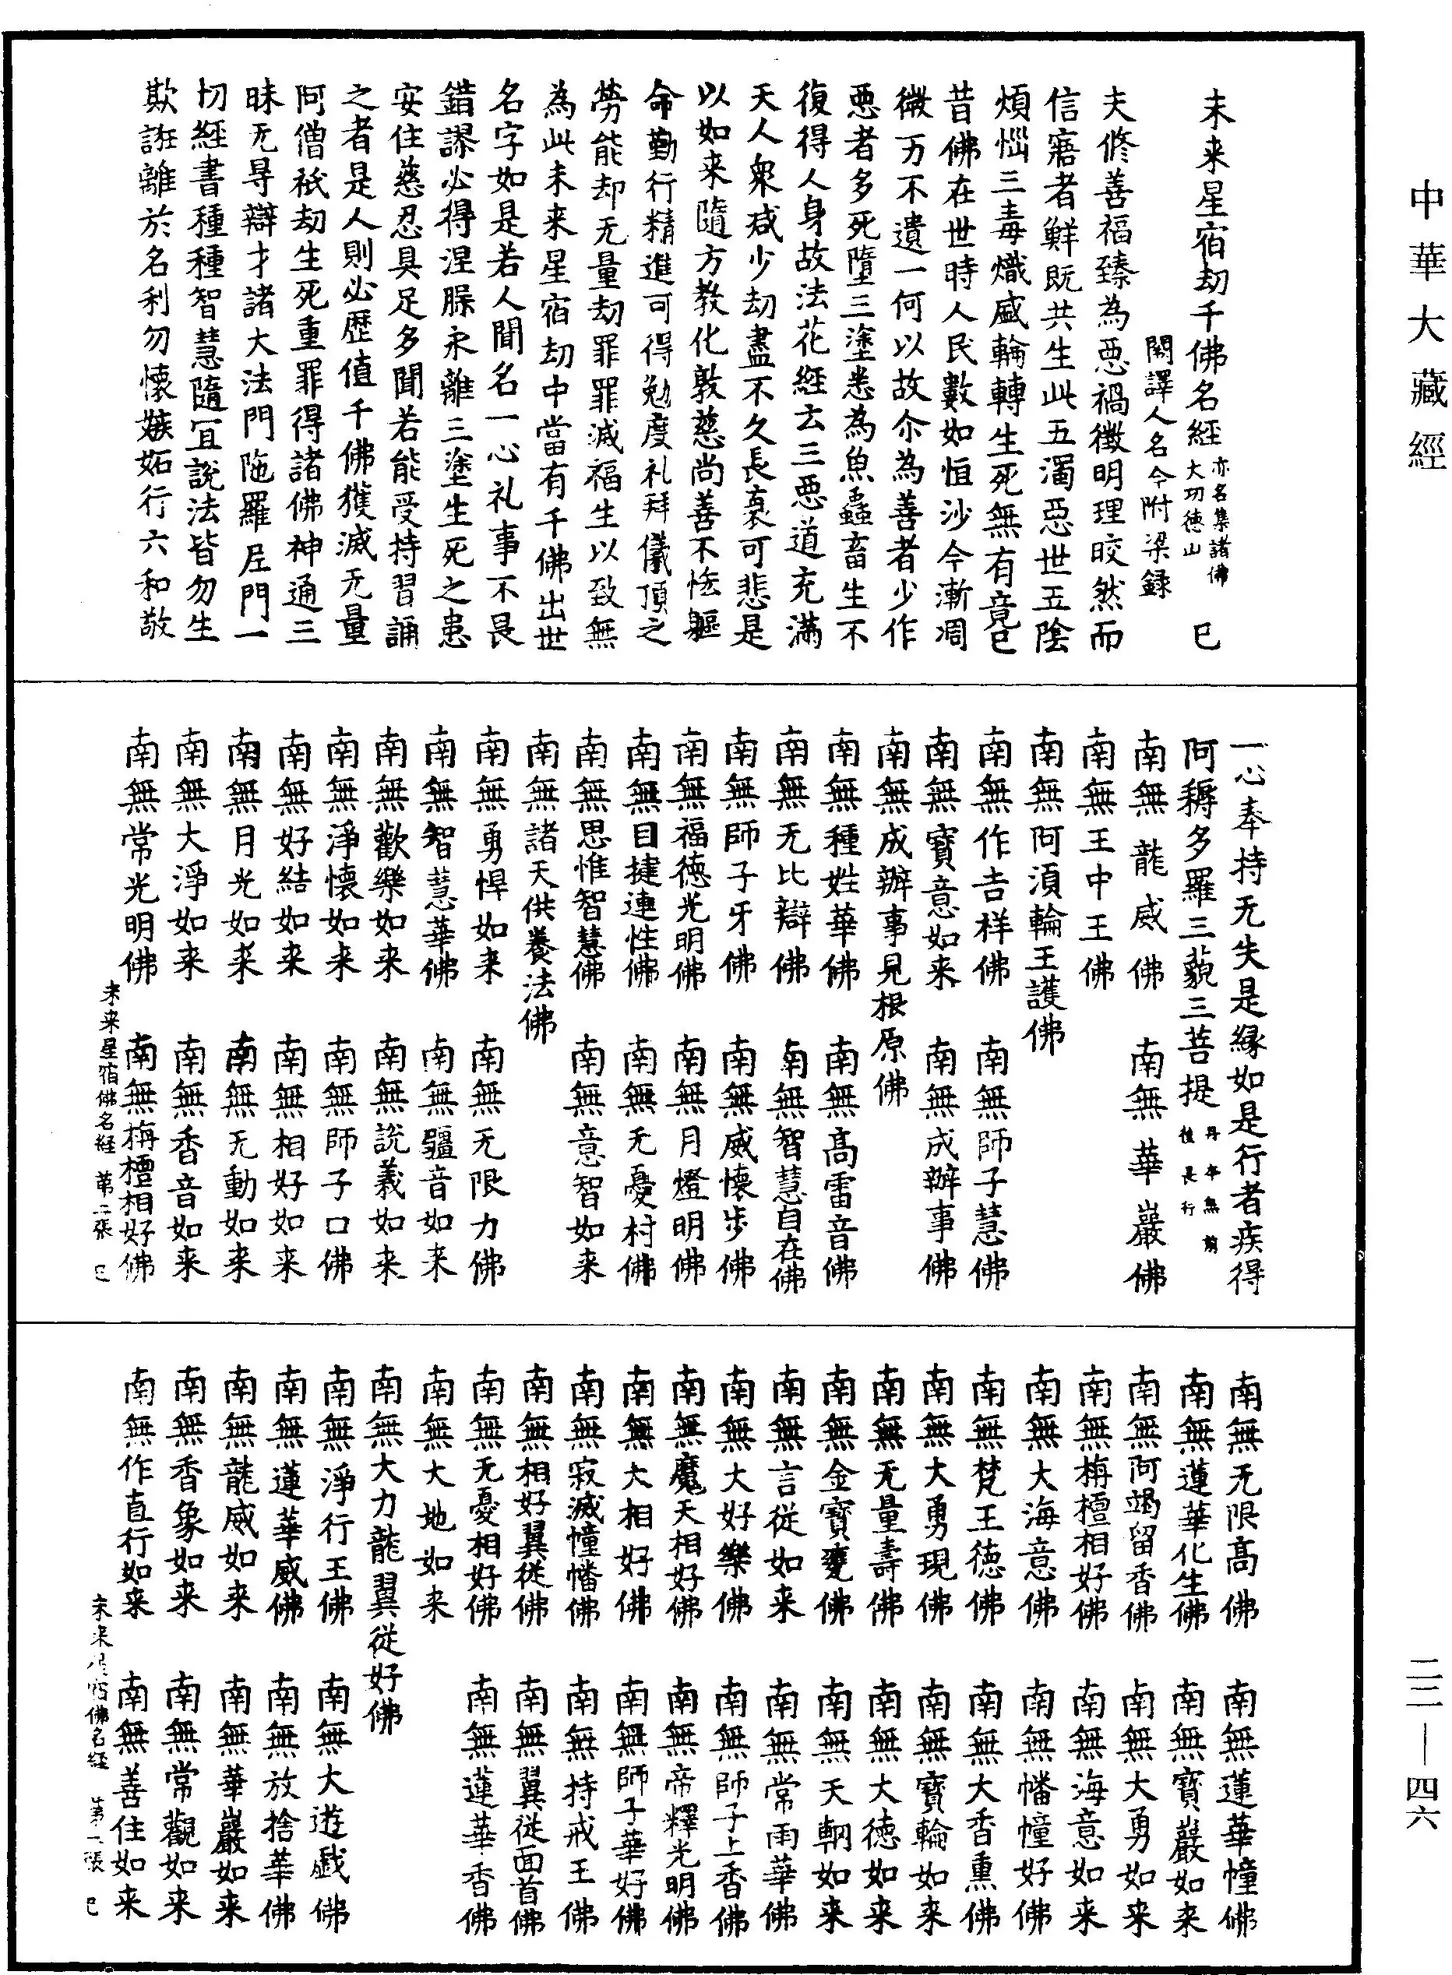 中華大藏經
未来星宿劫千佛名經 亦名集諸佛大功德山 巳
闕譯人名今附梁録
夫修善福臻為惡禍徵明理皎然而
信寤者鮮既共生此五濁惡世五陰
煩惱三毒熾盛輪轉生死無有竟已
昔佛在世時人民數如恒沙今漸凋
微万不遺一何以故尒為善者少作
惡者多死墮三塗悉為魚蟲畜生不
復得人身故法花経云三惡道充滿
天人衆减少劫盡不久長衰可悲是
以如来隨方教化敦慈尚善不恡軀
命勤行精進可得勉度礼拜儀頂之
勞能却无量劫罪罪滅福生以致無
為此未来星宿劫中當有千佛出世
名字如是若人聞名一心礼事不畏
錯謬必得涅槃永離三塗生死之患
安住慈忍具足多聞若能受持習誦
之者是人則必歷值千佛獲滅无量
阿僧祇劫生死重罪得諸佛神通三
昧无㝵辯才諸大法門陁羅尼門一
切經書種種智慧隨宜說法皆勿生
欺誑離於名利勿懷嫉妬行六和敬
一心奉持无失是縁如是行者疾得
阿耨多羅三藐三菩提 丹本無前後長行
南無龍威佛 南無華嚴佛
南無王中王佛
南無阿須輪王護佛
南無作吉祥佛 南無師子慧佛
南無寶意如来 南無成辦事佛
南無成辦事見根原佛
南無種姓華佛 南無高雷音佛
南無无比辯佛 南無智慧自在佛
南無師子牙佛 南無威懷步佛
南無福德光明佛 南無月燈明佛
南無目揵連性佛 南無无憂村佛
南無思惟智慧佛 南無意智如来
南無諸天供養法佛
南無勇悍如来 南無无限力佛
南無智慧華佛 南無疆音如来
南無歡樂如来 南無說義如来
南無淨懷如来 南無師子口佛
南無好結如来 南無相好如来
南無月光如来 南無无動如来
南無大淨如来 南無香音如来
南無常光明佛 南無栴檀相好佛
未来星宿佛名経 第二張 巳
南無无限高佛 南無蓮華幢佛
南無蓮華化生佛 南無寶巖如来
南無阿竭留香佛 南無大勇如来
南無栴檀相好佛 南無海意如来
南無大海意佛 南無幡幢好佛
南無梵王德佛 南無大香熏佛
南無大勇現佛 南無寶輪如来
南無无量壽佛 南無大德如来
南無金寶甕佛 南無天朝如来
南無言従如来 南無常雨華佛
南無大好樂佛 南無師子上香佛
南無魔天相好佛 南無帝釋光明佛
南無大相好佛 南無師子華好佛
南無寂滅幢幡佛 南無持戒王佛
南無相好翼従佛 南無翼従面首佛
南無无憂相好佛 南無蓮華香佛
南無大地如来
南無大力龍翼従好佛
南無淨行王佛 南無大遊戲佛
南無蓮華威佛 南無放捨華佛
南無龍威如来 南無華嚴如来
南無香象如来 南無常觀如来
南無作直行如来 南無善住如来
未来星宿佛名経 第 張 巳
二二—四六